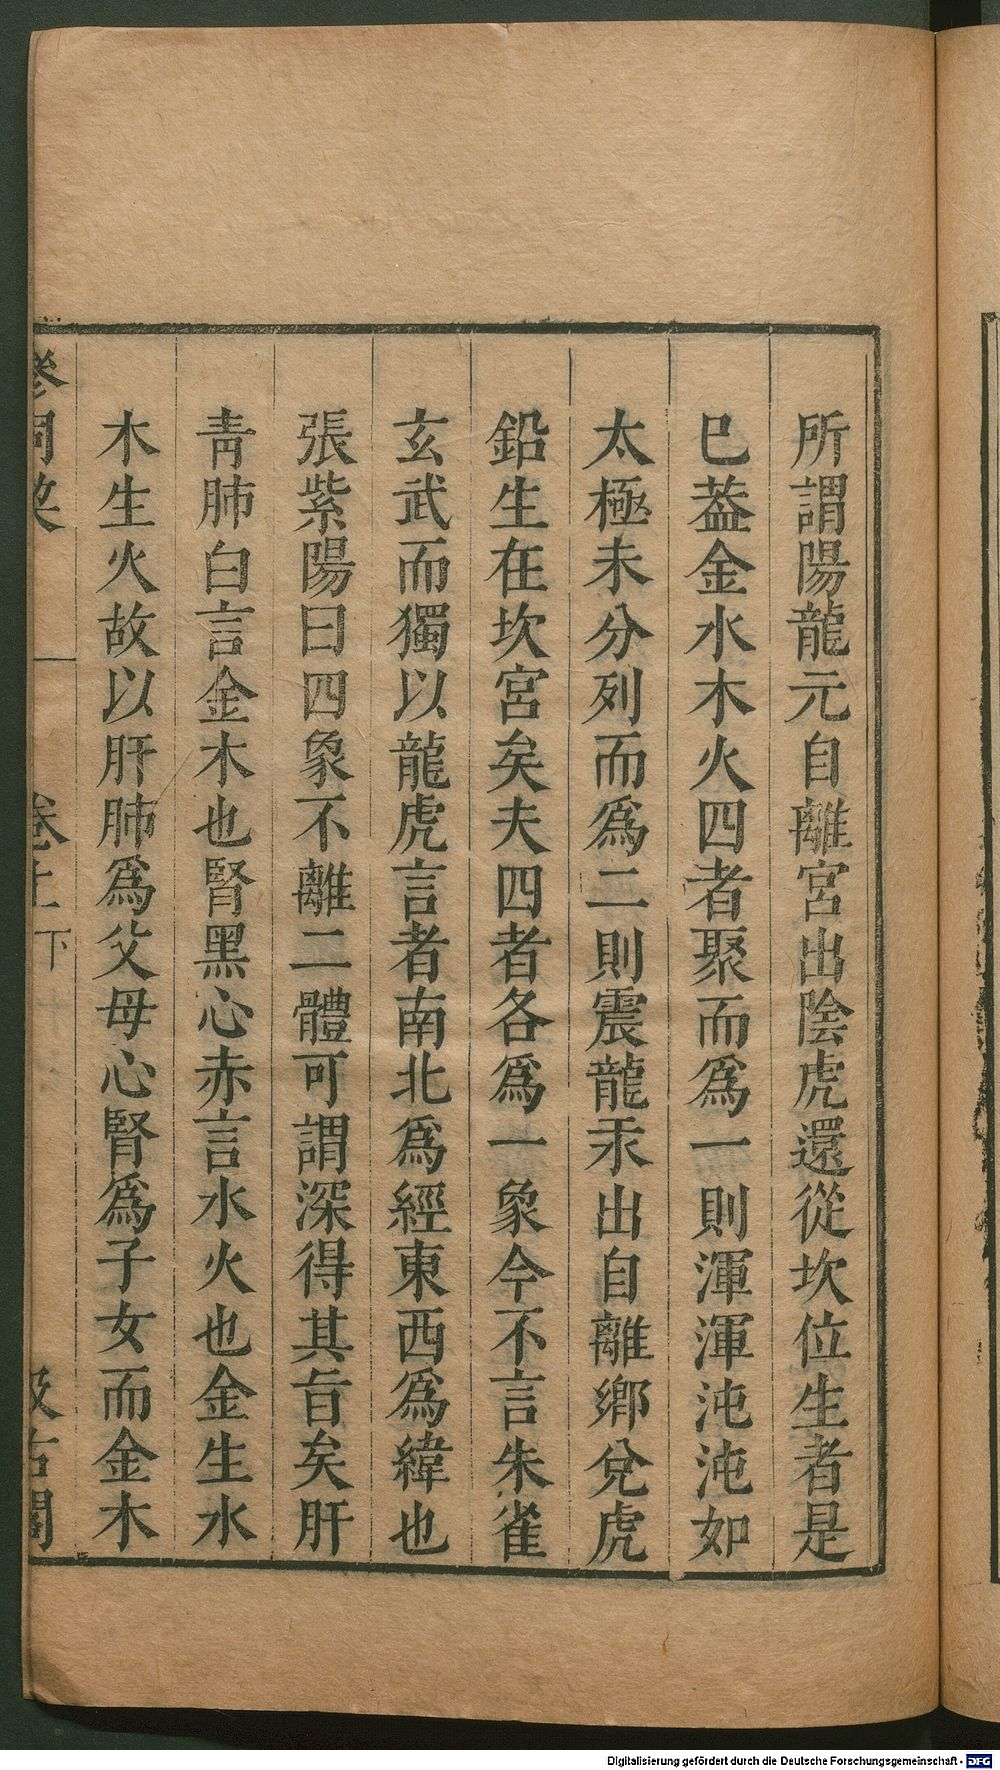 所謂陽龍元自離宮出陰虎還從坎位生者是
巳葢金水木火四者聚而爲一則渾渾沌沌如
太極未分列而爲二則震龍汞出自離鄉兌虎
鉛生在坎宮矣夫四者各爲一象今不言朱雀
玄武而獨以龍虎言者南北爲經東西爲緯也
張紫陽曰四象不離二體可謂深得其旨矣肝
靑肺白言金木也腎黑心赤言水火也金生水
木生火故以肝肺爲父母心腎爲子女而金木
卷上 下
汲古閣
Digitalisierung gefördert durch die Deutsche Forschungsgemeinschaft - DFG